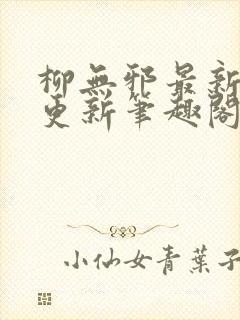 柳無邪最新
更新筆趣閣
小仙女青葉子